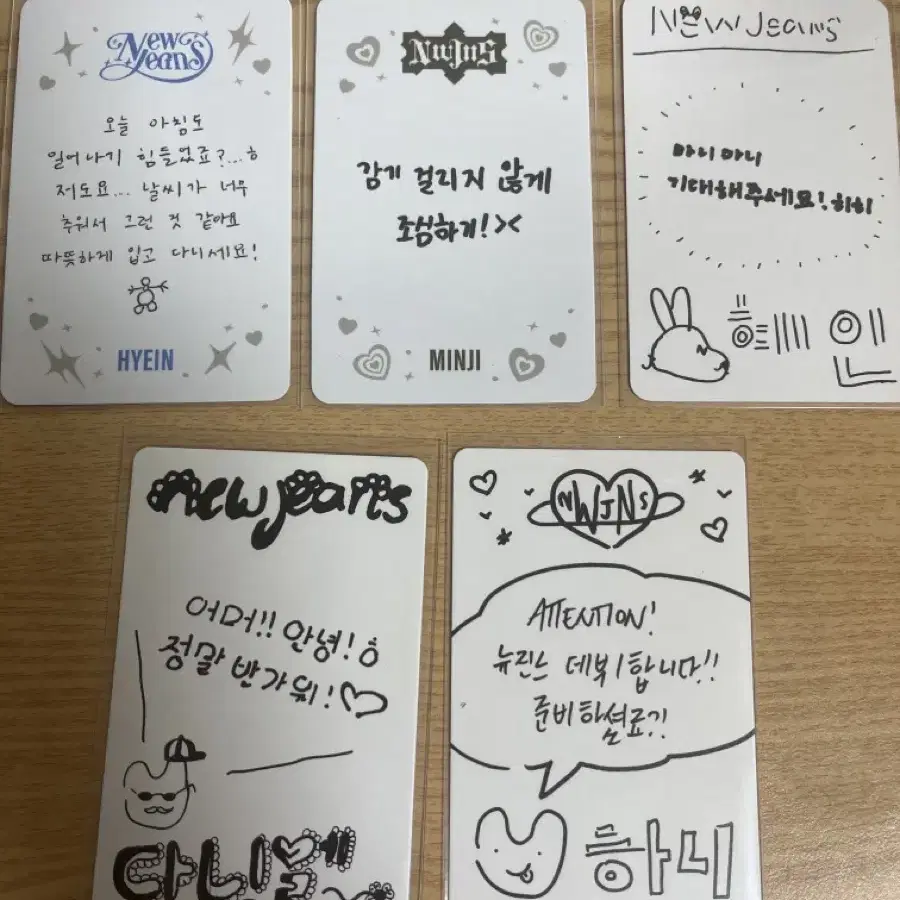 New
Jeans
오늘 아침도
일어나기 힘들었죠?...ㅎ
저도요... 날씨가 너무
추워서 그런 것 같아요
따뜻하게 입고 다니세요!
HYEIN
NWJNS
감기 걸리지 않게
조심하기! ><
MINJI
NEW Jeans
마니마니
기대해주세요! 히히
혜인
newjeans
어머!! 안녕! ㅎ
정말 반가워! ♡
다니엘
NWJNS
ATTENTION!
뉴진스 데뷔합니다!!
준비하셨죠?!
하니